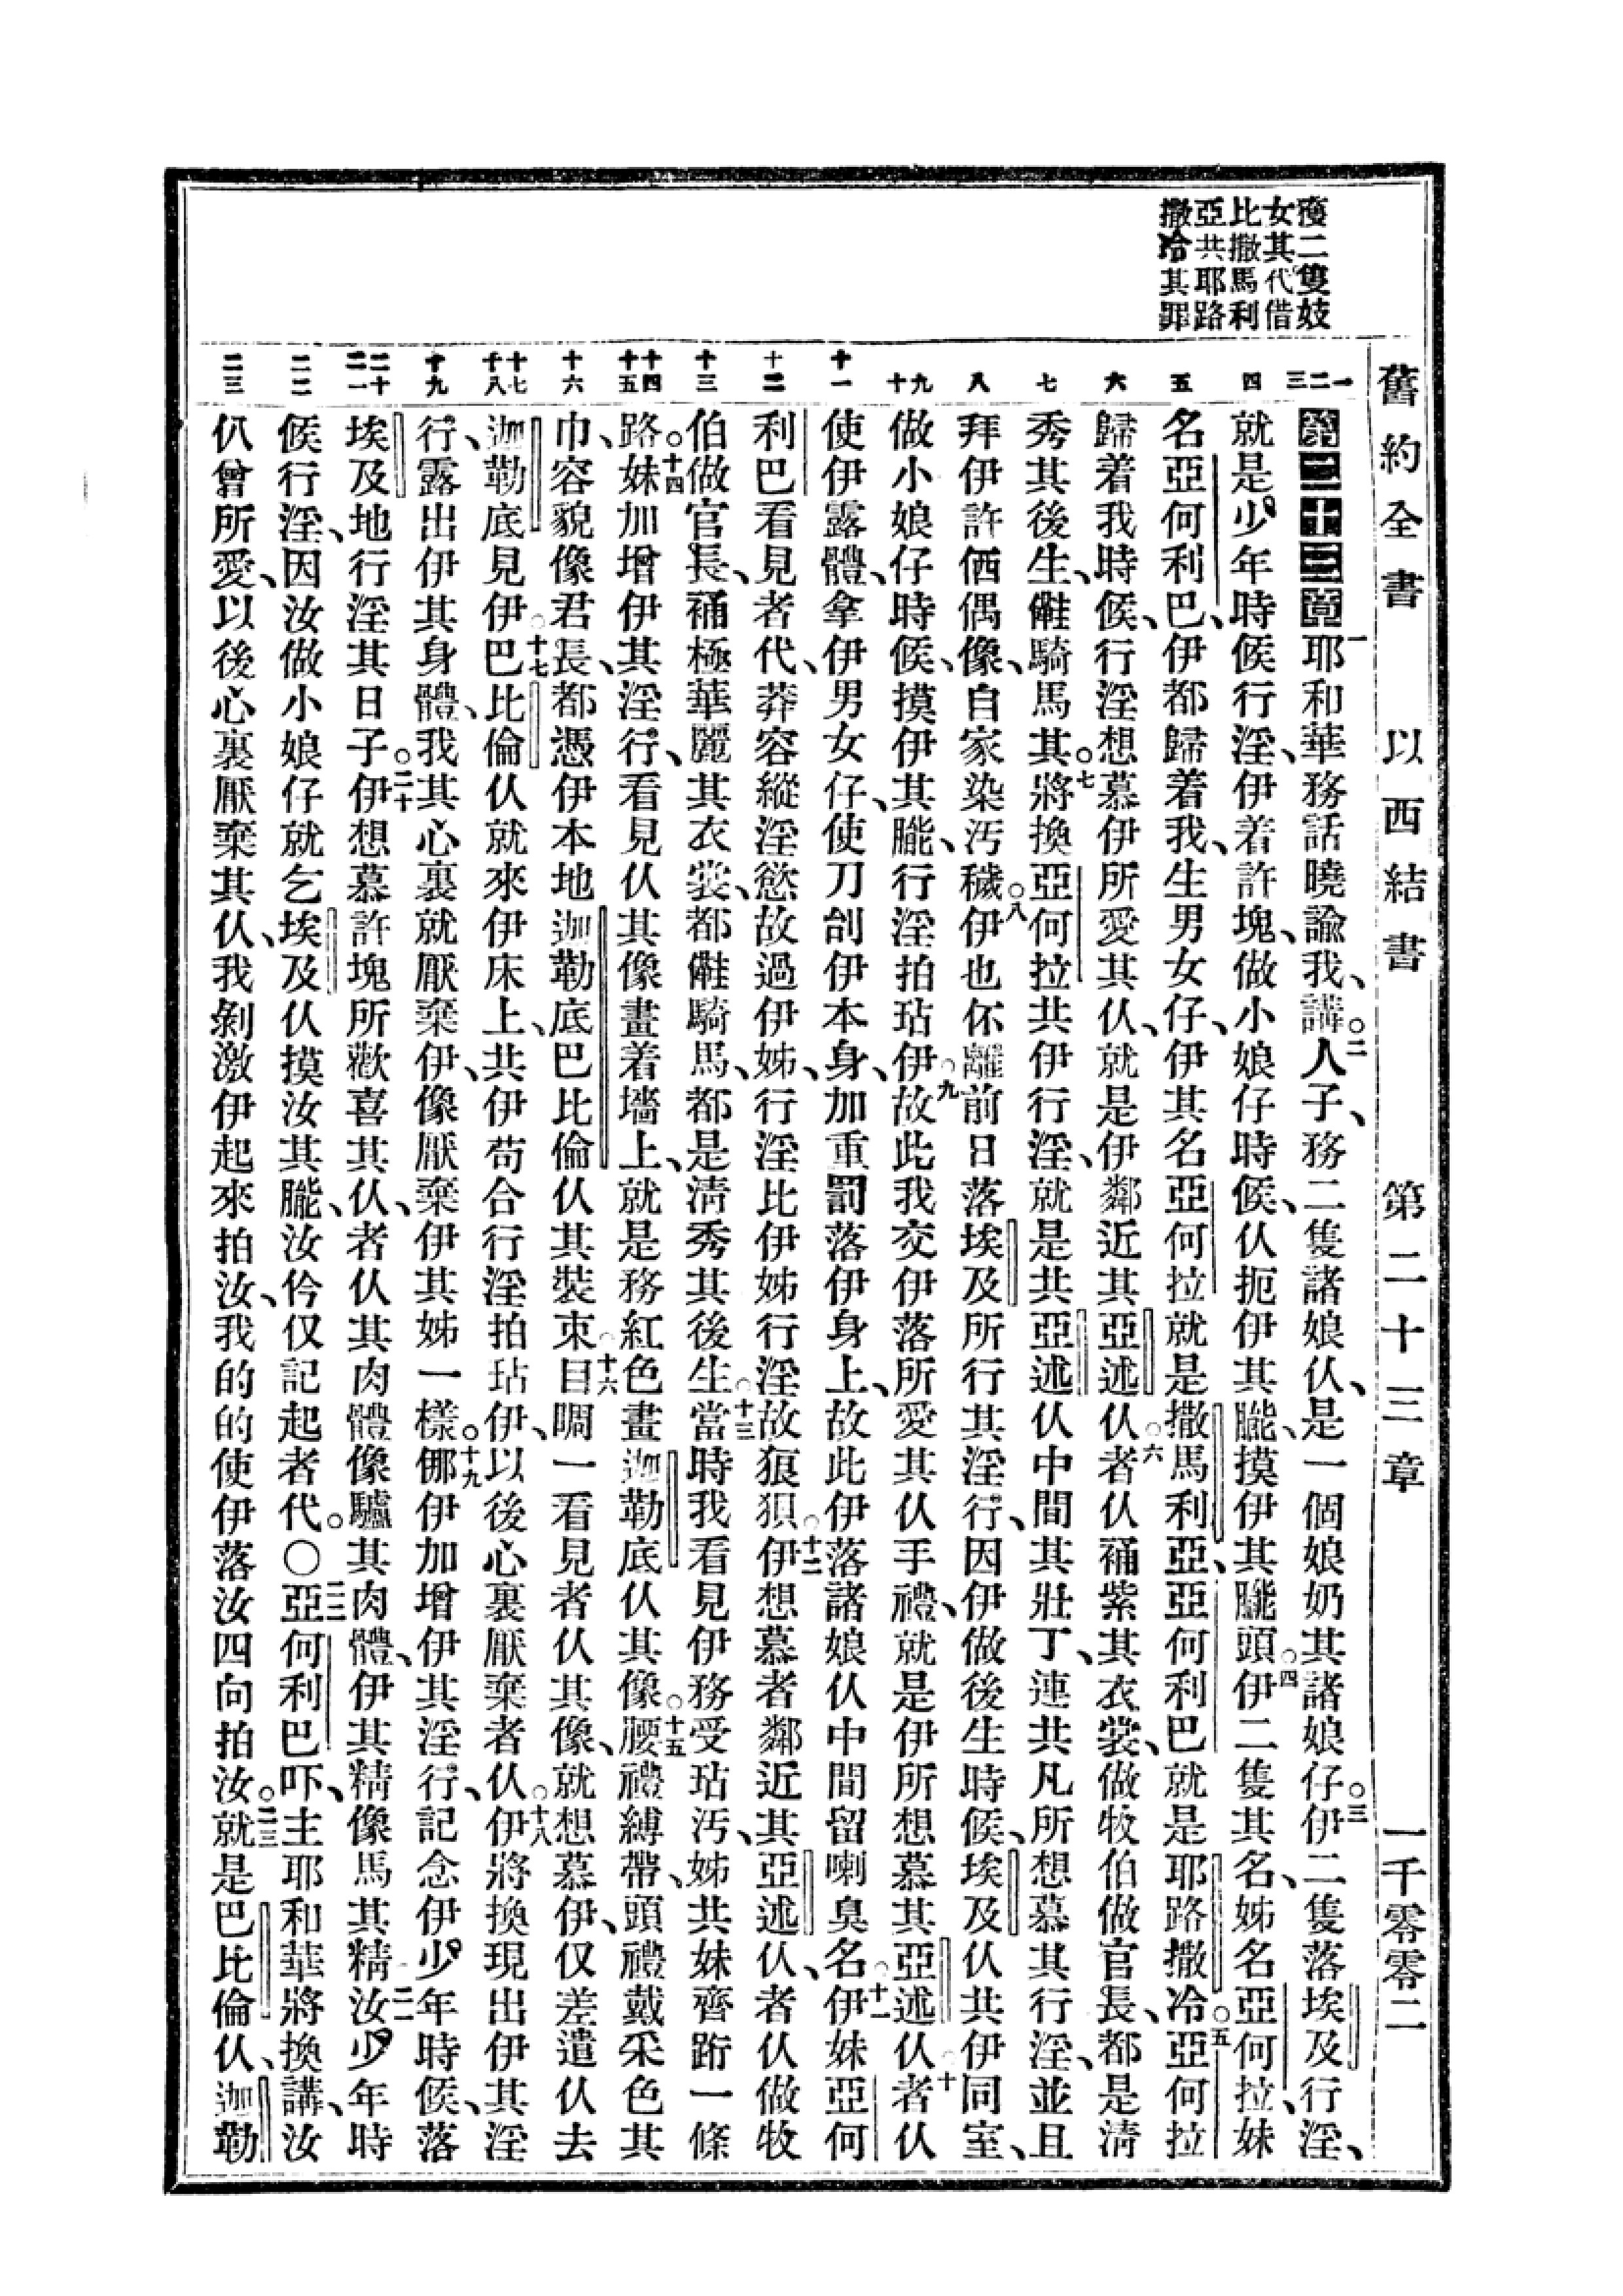 舊約全書 以西結書 第二十三章 一千零零二
獲二隻妓
女其代借
比撒馬利
亞共耶路
撒冷其罪
一 二 三 四 五 六 七 八 九 十 十一 十二 十三 十四 十五 十六 十七 十八 十九 二十 二一 二二 二三
第二十三章 一耶和華務話曉諭我、講。二人子、務二隻諸娘仈、是一個娘奶其諸娘仔。三伊二隻落埃及行淫、
就是少年時候行淫、伊着許塊、做小娘仔時候、仈扼伊其𦢓、摸伊其𦢓頭。四伊二隻其名、姊名亞何拉、妹
名亞何利巴、伊都歸着我、生男女仔、伊其名亞何拉就是撒馬利亞、亞何利巴就是耶路撒冷。五亞何拉
歸着我時候、行淫想慕伊所愛其仈、就是伊鄰近其亞述仈。六者仈䘄紫其衣裳、做牧伯做官長、都是清
秀其後生、儺騎馬其。七將換亞何拉共伊行淫、就是共亞述仈中間其壯丁、連共凡所想慕其行淫、並且
拜伊許俖偶像、自家染汚穢。八伊也伓離前日落埃及所行其淫行、因伊做後生時候、埃及仈共伊同室、
做小娘仔時候、摸伊其𦢓、行淫拍玷伊。九故此我交伊落所愛其仈手禮、就是伊所想慕其亞述仈。十者仈
使伊露體、拿伊男女仔、使刀刣伊本身、加重罰落伊身上、故此伊落諸娘仈中間留喇臭名。十一伊妹亞何
利巴看見者代、莽容縱淫慾、故過伊姊、行淫比伊姊行淫故狼狽。十二伊想慕者鄰近其亞述仈、者仈做牧
伯做官長、䘄極華麗其衣裳、都儺騎馬、都是清秀其後生。十三當時我看見伊務受玷汚、姊共妹齊跡一條
路。十四妹加增伊其淫行、看見仈其像畫着墻上、就是務紅色畫迦勒底仈其像。十五腰禮縛帶、頭禮戴采色其
巾、容貌像君長、都憑伊本地迦勒底巴比倫仈其裝束。十六目睭一看見者仈其像、就想慕伊、仅差遣仈去
迦勒底見伊。十七巴比倫仈就來伊床上、共伊苟合行淫拍玷伊、以後心裏厭棄者仈。十八伊將換現出伊其淫
行、露出伊其身體、我其心裏就厭棄伊、像厭棄伊其姊一樣。十九㑚伊加增伊其淫行、記念伊少年時候、落
埃及地行淫其日子。二十伊想慕許塊所歡喜其仈、者仈其肉體像驢其肉體、伊其精像馬其精。二一汝少年時
候行淫、因汝做小娘仔就乞埃及仈摸汝其𦢓、汝仱仅記起者代。〇二二亞何利巴吓、主耶和華將換講、汝
仈曾所愛、以後心裏厭棄其仈、我剝激伊起來拍汝、我的的使伊落汝四向拍汝。二三就是巴比倫仈、迦勒